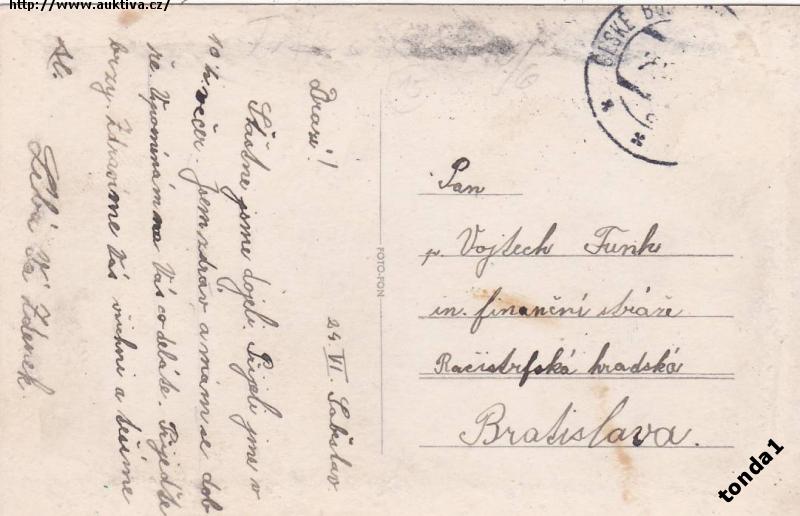 http://www.auktiva.cz/
ČESKÉ BU
24. VI.
Drazí!
Šťastne jsme dojeli Přijeli jsme v
10 h. večer. Jsem zdráv a mám se dob
ře. Vpomínám na Vás co deláte. Přijeďte
brzy. Zdravíme Vás všichni a tešíme
se.
Líbá Vás Zdenek.
FOTO-FON
Pan
p. Vojtech Funk
in. finanční stráže
Račistrfská hradská
Bratislava.
tonda1